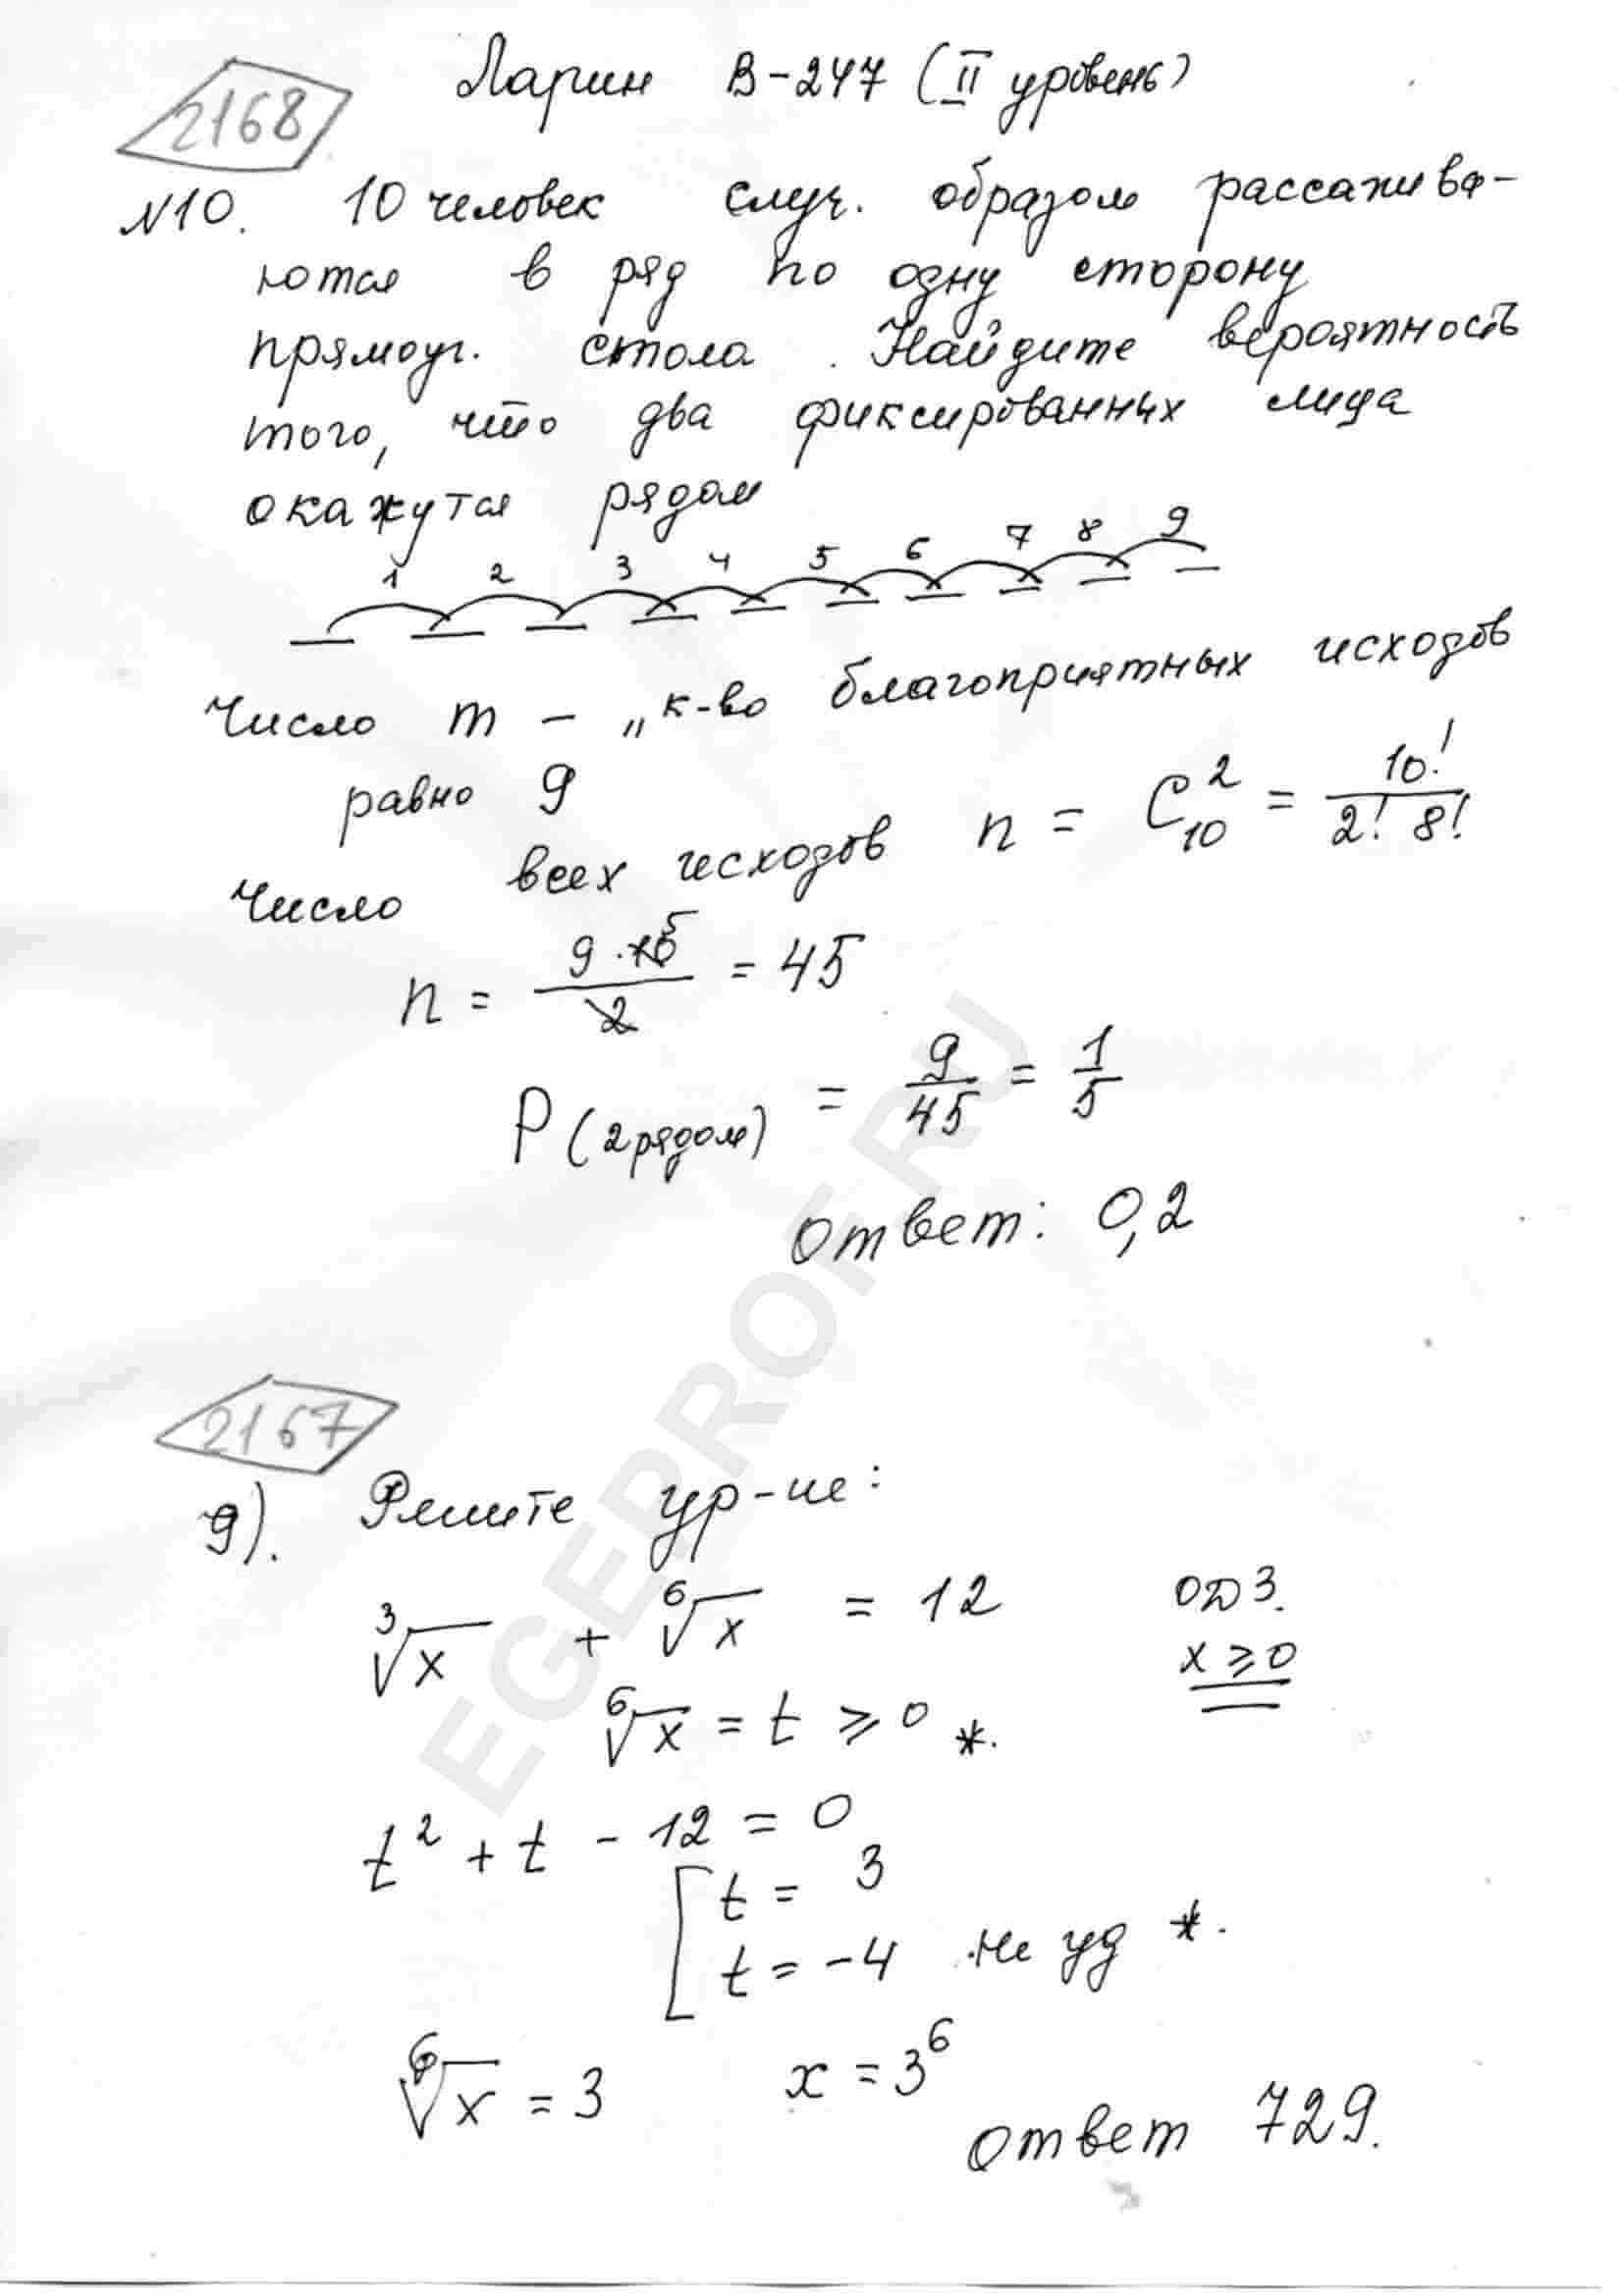 Ларин В-247 (II уровень)
2168
№10. 10 человек случ. образом рассажива-
ются в ряд по одну сторону
прямоуг. стола. Найдите вероятность
того, что два фиксированных лица
окажутся рядом
1 2 3 4 5 6 7 8 9
Число m – „ к-во благоприятных исходов
равно 9
Число всех исходов n = C₁₀² = 10! / 2! 8!
n = 9 · 10 5 / 2 = 45
P (2 рядом) = 9/45 = 1/5
Ответ: 0,2
2167
9). Решите ур-ие:
∛x + ⁶√x = 12 ОДЗ.
x ⩾ 0
⁶√x = t ⩾ 0 *.
t² + t – 12 = 0
[ t = 3
t = –4 не уд *.
⁶√x = 3 x = 3⁶
Ответ 729.
EGEPROF.RU